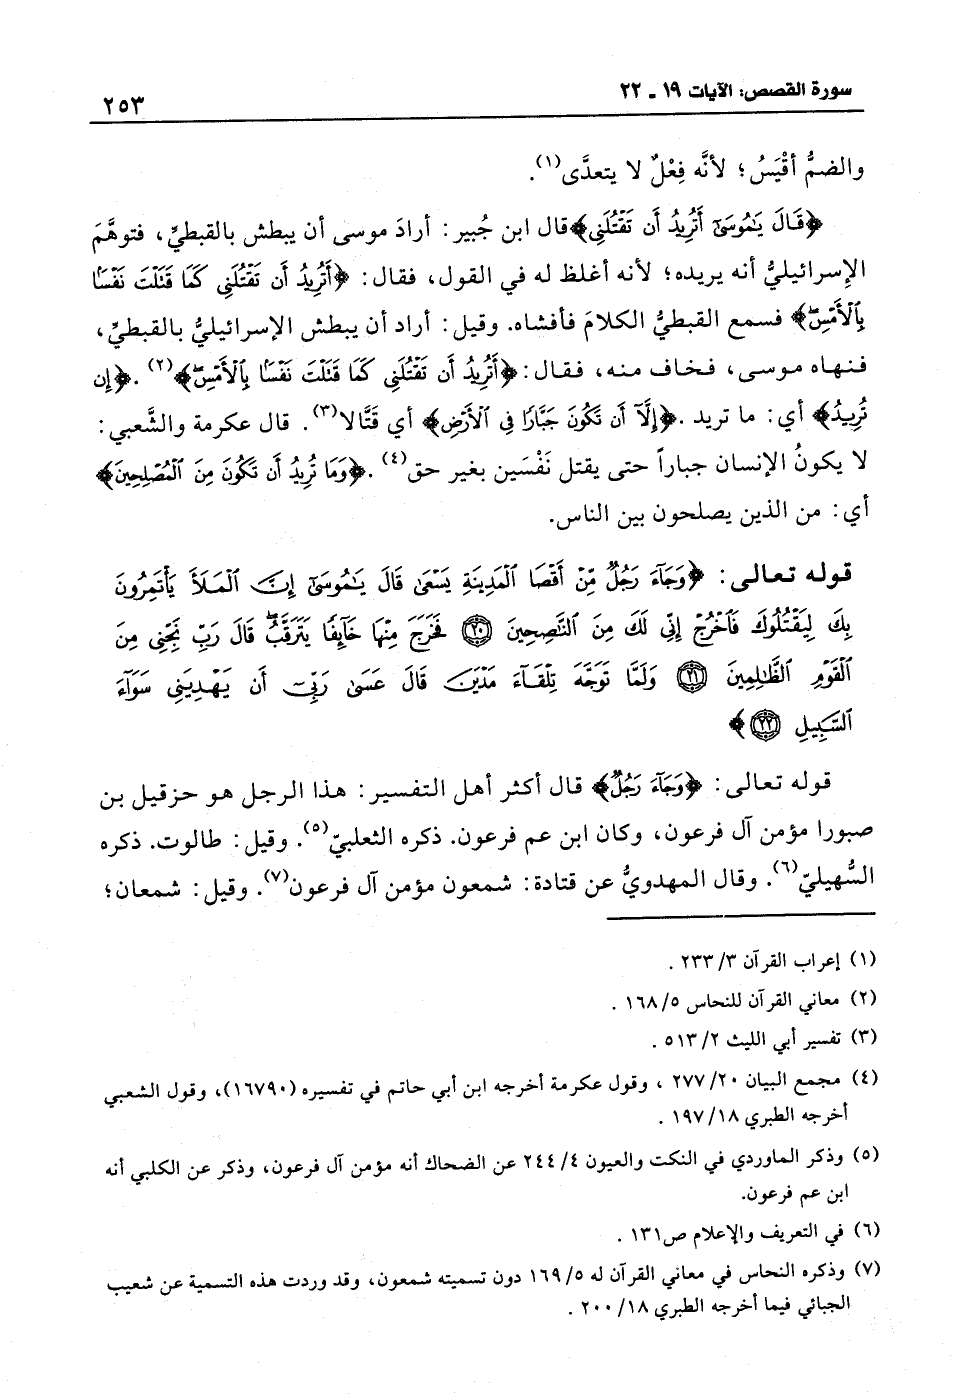 سورة القصص: الآيات ١٩ - ٢٢
٢٥٣
والضمُّ أقْيَسُ؛ لأنَّه فِعْلٌ لا يتعدَّى(١).
﴿قَالَ يَٰمُوسَىٰٓ أَتُرِيدُ أَن تَقْتُلَنِي﴾ قال ابن جُبير: أرادَ موسى أن يبطش بالقبطيِّ، فتوهَّمَ
الإسرائيليُّ أنه يريده؛ لأنه أغلظ له في القول، فقال: ﴿أَتُرِيدُ أَن تَقْتُلَنِي كَمَا قَتَلْتَ نَفْسًۢا
بِٱلْأَمْسِ﴾ فسمع القبطيُّ الكلامَ فأفشاه. وقيل: أراد أن يبطش الإسرائيليُّ بالقبطيِّ،
فنهاه موسى، فخاف منه، فقال: ﴿أَتُرِيدُ أَن تَقْتُلَنِي كَمَا قَتَلْتَ نَفْسًۢا بِٱلْأَمْسِ﴾(٢). ﴿إِن
تُرِيدُ﴾ أي: ما تريد. ﴿إِلَّآ أَن تَكُونَ جَبَّارًا فِي ٱلْأَرْضِ﴾ أي قَتَّالا(٣). قال عكرمة والشَّعبي:
لا يكونُ الإنسان جباراً حتى يقتل نَفْسَين بغير حق(٤). ﴿وَمَا تُرِيدُ أَن تَكُونَ مِنَ ٱلْمُصْلِحِينَ﴾
أي: من الذين يصلحون بين الناس.
قوله تعالى: ﴿وَجَآءَ رَجُلٌ مِّنْ أَقْصَا ٱلْمَدِينَةِ يَسْعَىٰ قَالَ يَٰمُوسَىٰٓ إِنَّ ٱلْمَلَأَ يَأْتَمِرُونَ
بِكَ لِيَقْتُلُوكَ فَٱخْرُجْ إِنِّي لَكَ مِنَ ٱلنَّٰصِحِينَ ۝٢٠ فَخَرَجَ مِنْهَا خَآئِفًا يَتَرَقَّبُ قَالَ رَبِّ نَجِّنِي مِنَ
ٱلْقَوْمِ ٱلظَّٰلِمِينَ ۝٢١ وَلَمَّا تَوَجَّهَ تِلْقَآءَ مَدْيَنَ قَالَ عَسَىٰ رَبِّيٓ أَن يَهْدِيَنِي سَوَآءَ
ٱلسَّبِيلِ ۝٢٢﴾
قوله تعالى: ﴿وَجَآءَ رَجُلٌ﴾ قال أكثر أهل التفسير: هذا الرجل هو حزقيل بن
صبورا مؤمن آل فرعون، وكان ابن عم فرعون. ذكره الثعلبيّ(٥). وقيل: طالوت. ذكره
السُّهيليّ(٦). وقال المهدويُّ عن قتادة: شمعون مؤمن آل فرعون(٧). وقيل: شمعان؛
(١) إعراب القرآن ٢٣٣/٣ .
(٢) معاني القرآن للنحاس ١٦٨/٥ .
(٣) تفسير أبي الليث ٥١٣/٢ .
(٤) مجمع البيان ٢٧٧/٢٠ ، وقول عكرمة أخرجه ابن أبي حاتم في تفسيره (١٦٧٩٠)، وقول الشعبي
أخرجه الطبري ١٩٧/١٨ .
(٥) وذكر الماوردي في النكت والعيون ٢٤٤/٤ عن الضحاك أنه مؤمن آل فرعون، وذكر عن الكلبي أنه
ابن عم فرعون.
(٦) في التعريف والإعلام ص١٣١ .
(٧) وذكره النحاس في معاني القرآن له ١٦٩/٥ دون تسميته شمعون، وقد وردت هذه التسمية عن شعيب
الجبائي فيما أخرجه الطبري ٢٠٠/١٨ .